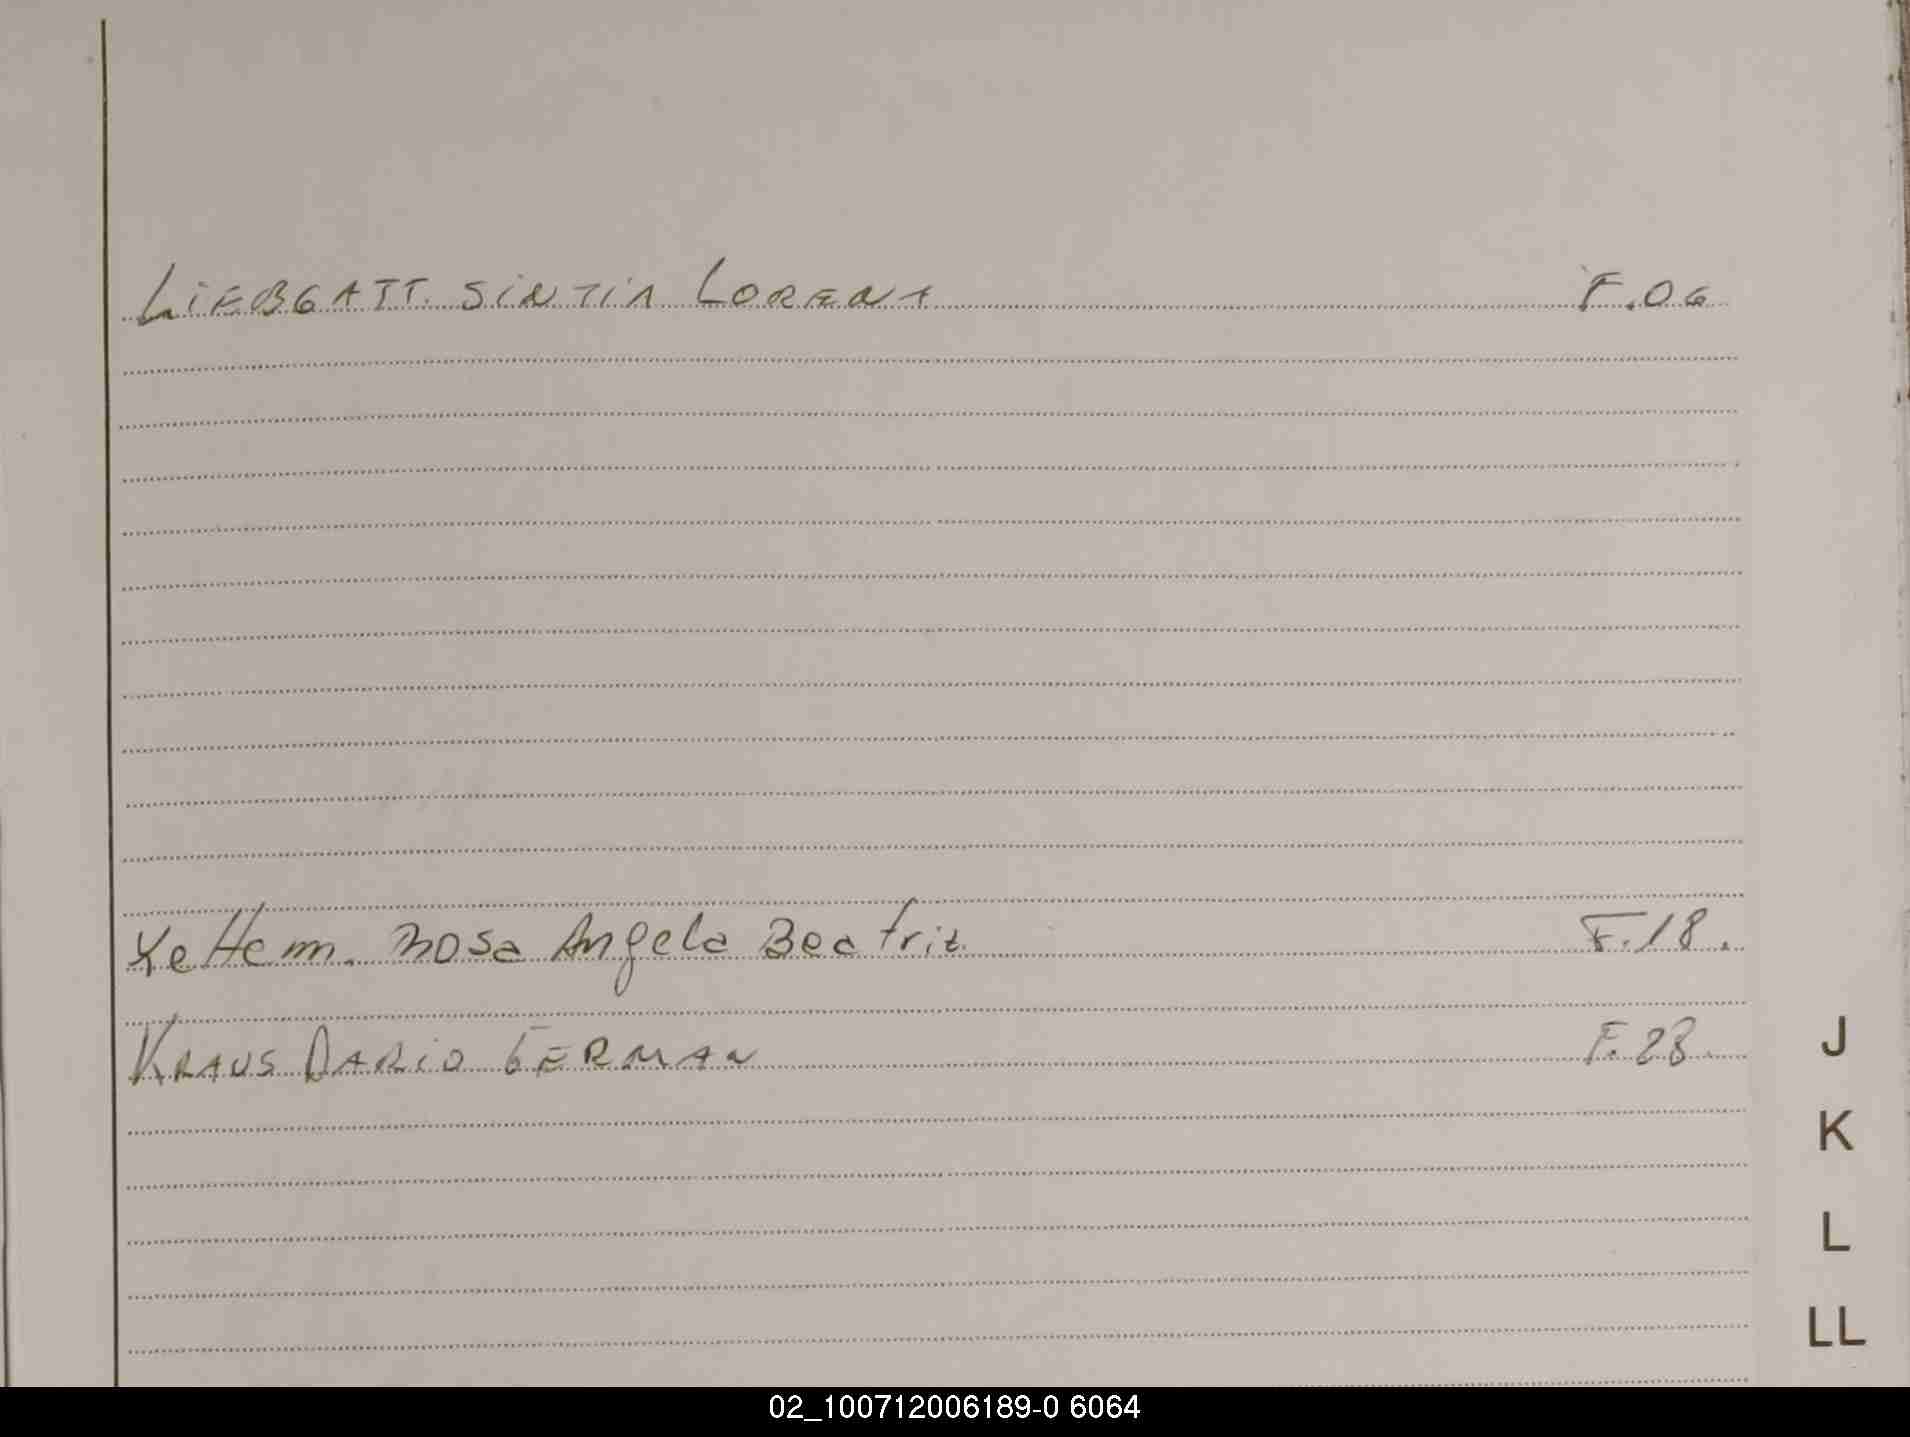 LiEBGATT. SiNTiA LORENA F.06
Kettem. Rosa Angela Beatriz. F.18.
KRAUS DARiO GERMAN F.28.
J
K
L
LL
02_100712006189-0 6064